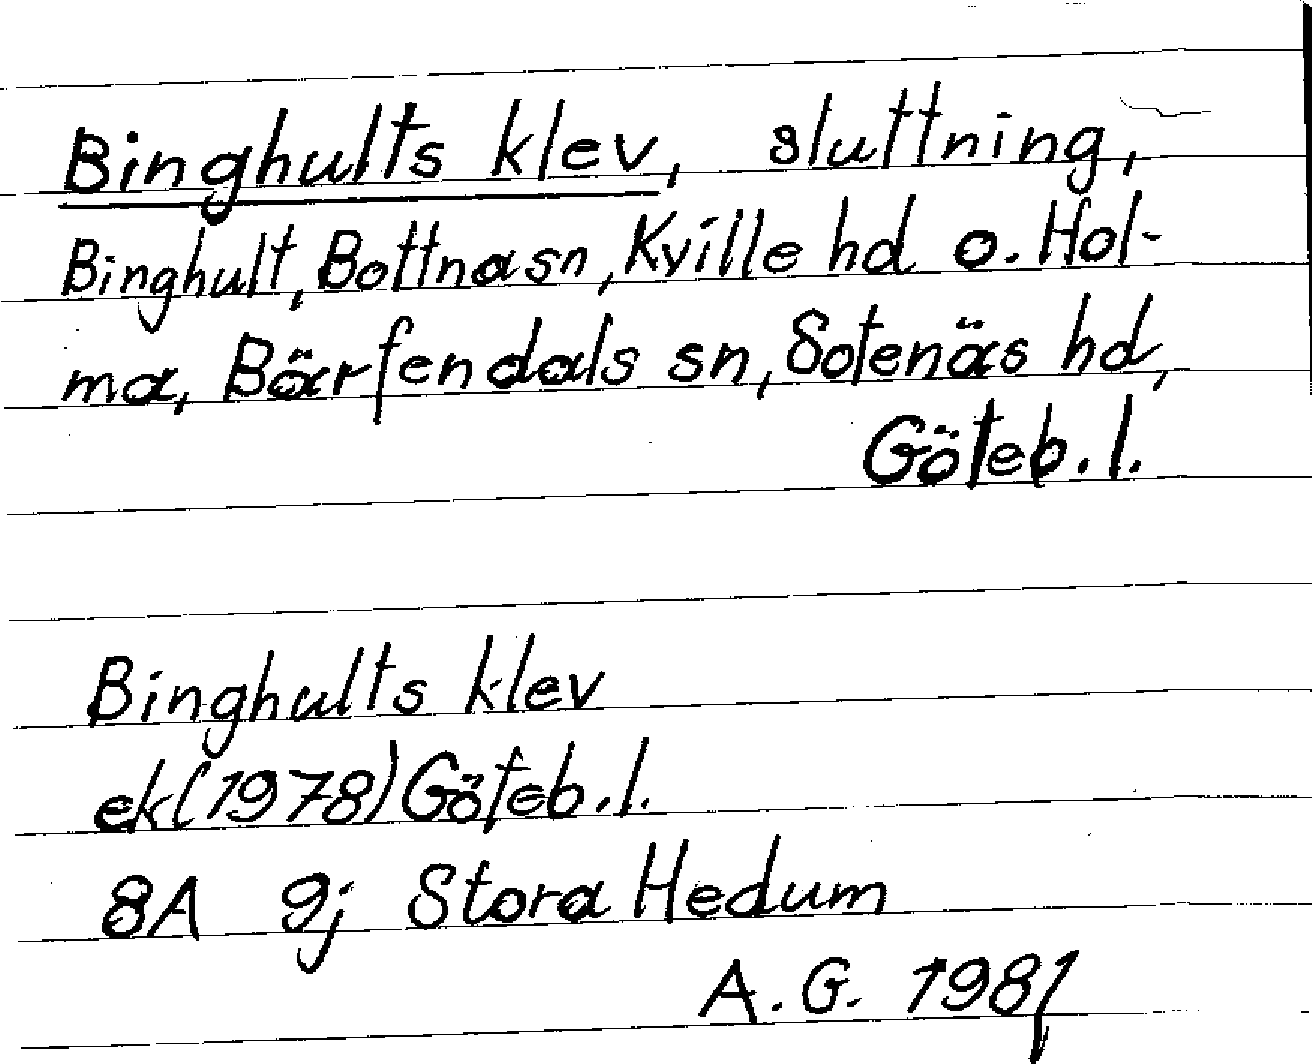 Binghults klev, sluttning,
Binghult, Bottna sn, Kville hd o. Hol-
ma, Bärfendals sn, Sotenäs hd,
Göteb. l.
Binghults klev
ek (1978) Göteb. l.
8A 9j Stora Hedum
A. G. 1981